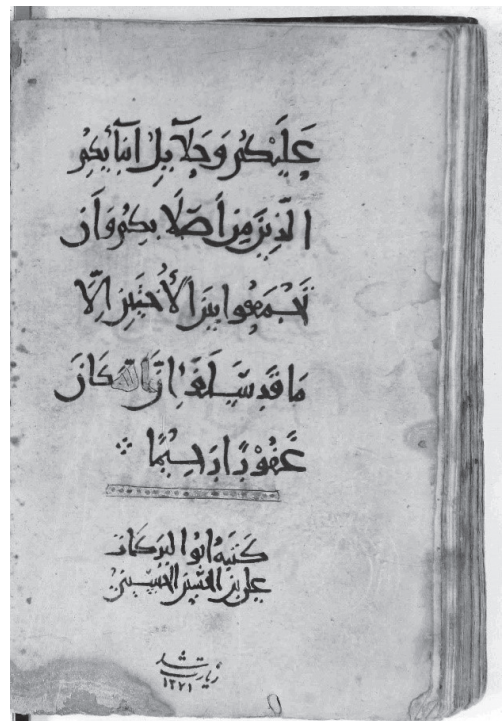 عَلَيْكُمْ وَحَلَآيِلُ اَبْنَآيِكُمُ
الَّذِينَ مِنْ اَصْلَابِكُمْ وَاَنْ
تَجْمَعُوا بَيْنَ الْاُخْتَيْنِ اِلَّا
مَا قَدْ سَلَفَ اِنَّ اللّٰهَ كَانَ
غَفُوْرًا رَحِيمًا
كتبه ابوالبركات
علي بن الحسين الحسيني
زيارت شد